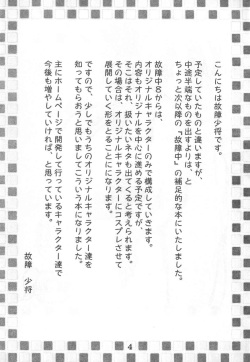 こんにちは故障少将です。
予定していたものと違いますが、
中途半端なものを出すよりは、と
ちょっと次以降の「故障中」の補足的な本にいたしました。
故障中8からは、
オリジナルキャラクターのみで構成していきますので、
内容もオリジナルを中心に進める予定ですが、
そこはそれ、扱いたいネタも出てくると考えられます。
その場合は、オリジナルキャラクターにコスプレさせて
展開していく形をとることになります。
ですので、少しでもうちのオリジナルキャラクター達を
知ってもらおうと思いましてこういう本になりました。
主にホームページで開発して行っているキャラクター達で
今後も増やしていければ、と思っています。
故障 少将
4